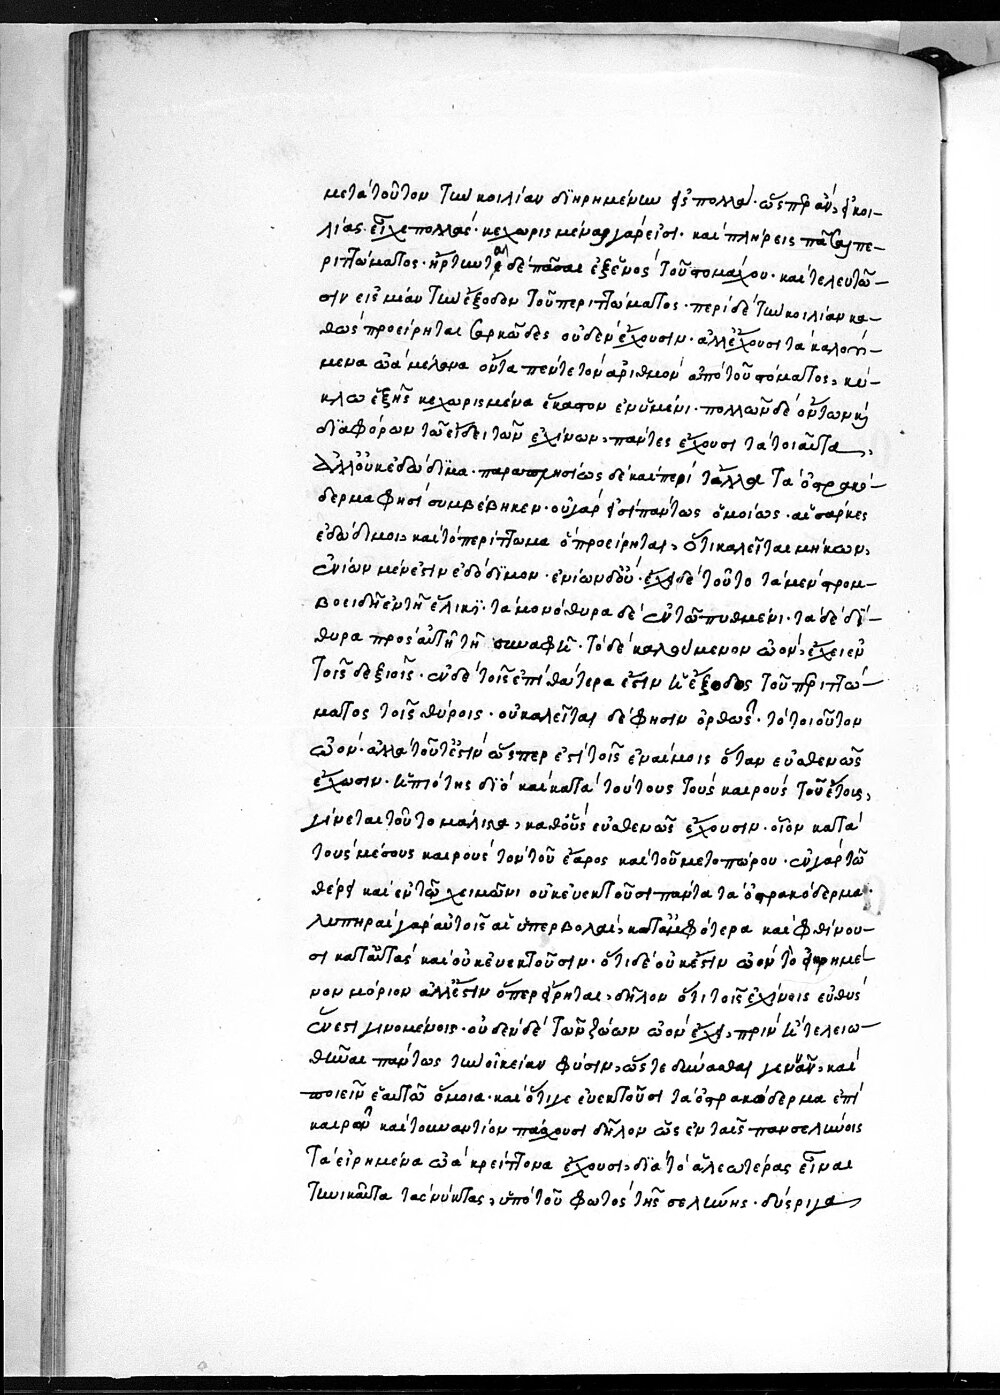 μετὰ τοῦτον τὴν κοιλίαν διηρημένην εἰς πολλὰ· ὥσπερ ἂν, εἰ κοι-
λίας εἶχε πολλάς· κεχωρισμέναι γάρ εἰσι· καὶ πλήρεις πᾶσαι πε-
ριττώματος· ἤρτηνται δὲ πᾶσαι ἐξ ἑνὸς τοῦ στομάχου· καὶ τελευτῶ-
σιν εἰς μίαν τὴν ἔξοδον τοῦ περιττώματος· περὶ δὲ τὴν κοιλίαν κα-
θὼς προείρηται σαρκῶδες οὐδὲν ἔχουσιν· ἀλλ' ἔχουσι τὰ καλού-
μενα ὠὰ μέλανα ὄντα πέντε τὸν ἀριθμὸν ἀπὸ τοῦ στόματος, κύ-
κλω ἑξῆς κεχωρισμένα ἕκαστον ἐν ὑμένι· πολλῶν δὲ ὄντων καὶ
διαφόρων τῶ εἴδει τῶν ἐχίνων, πάντες ἔχουσι τὰ τοιαῦτα,
ἀλλ' οὐκ ἐδώδιμα· παραπλησίως δὲ καὶ περὶ τἄλλα τὰ ὀστρακό-
δερμα φησὶ συμβέβηκεν· οὐ γάρ εἰσι πάντως ὁμοίως· αἱ σάρκες
ἐδώδιμοι, καὶ τὸ περίττωμα ὃ προείρηται, ὅτι καλεῖται μήκων,
ἐνίων μέν ἐστιν ἐδώδιμον· ἐνίων δ' οὔ· ἔχει δὲ τοῦτο τὰ μὲν στρομ-
βοειδῆ ἐν τῆ ἕλικι· τὰ μονόθυρα δὲ ἐν τῶ πυθμένι· τὰ δὲ δί-
θυρα πρὸς αὐτῆ τῆ συναφῆ· τὸ δὲ καλούμενον ὠὸν, ἔχει ἐν
τοῖς δεξιοῖς· ἐν δὲ τοῖς ἐπὶ θάτερα ἐστὶν ἡ ἔξοδος τοῦ περιττώ-
ματος τοῖς θύροις· οὐ καλεῖται δέ φησιν ὀρθῶς· τὸ τοιοῦτον
ὠόν· ἀλλὰ τοῦτ' ἐστὶν ὥσπερ ἐστὶ τοῖς ἐναίμοις ὅταν εὐσθενῶς
ἔχωσιν· ἡ πιότης διὸ καὶ κατὰ τούτους τοὺς καιροὺς τοῦ ἔτους,
γίνεται τοῦτο μάλιστα, καθ' οὓς εὐσθενῶς ἔχουσιν· οἷον κατὰ
τοὺς μέσους καιροὺς τόν τοῦ ἔαρος καὶ τοῦ μετοπώρου· ἐν γὰρ τῶ
θέρει καὶ ἐν τῶ χειμῶνι οὐκ εὐεκτοῦσι πάντα τὰ ὀστρακόδερμα·
λυπηραὶ γὰρ αὐτοῖς αἱ ὑπερβολαὶ, κατ' ἀμφότερα καὶ φθίνου-
σι κατ' αὐτὰς καὶ οὐκ εὐεκτοῦσιν· ὅτι δὲ οὐκ ἔστιν ὠὸν τὸ εἰρημέ-
νον μόριον ἀλλ' ἔστιν ὅπερ εἴρηται, δῆλον ὅτι τοῖς ἐχίνοις εὐθὺς
ἔνεστι γινομένοις· οὐδὲν δὲ τῶν ζώων ὠὸν ἔχει, πρὶν ἢ τελειω-
θῆναι πάντως τὴν οἰκείαν φύσιν, ὥστε δύνασθαι γεννᾶν, καὶ
ποιεῖν ἑαυτῶ ὅμοια· καὶ ὅτι γε εὐεκτοῦσι τὰ ὀστρακόδερμα ἐπὶ
καιρῶν καὶ τοὐναντίον πάσχουσι δῆλον ὡς ἐν ταῖς πανσελήνοις
τὰ εἰρημένα ὠὰ κρείττονα ἔχουσι, διὰ τὸ ἀλεωτέρας εἶναι
τηνικαῦτα τὰς νύκτας, ὑπὸ τοῦ φωτὸς τῆς σελήνης· δύσριγα